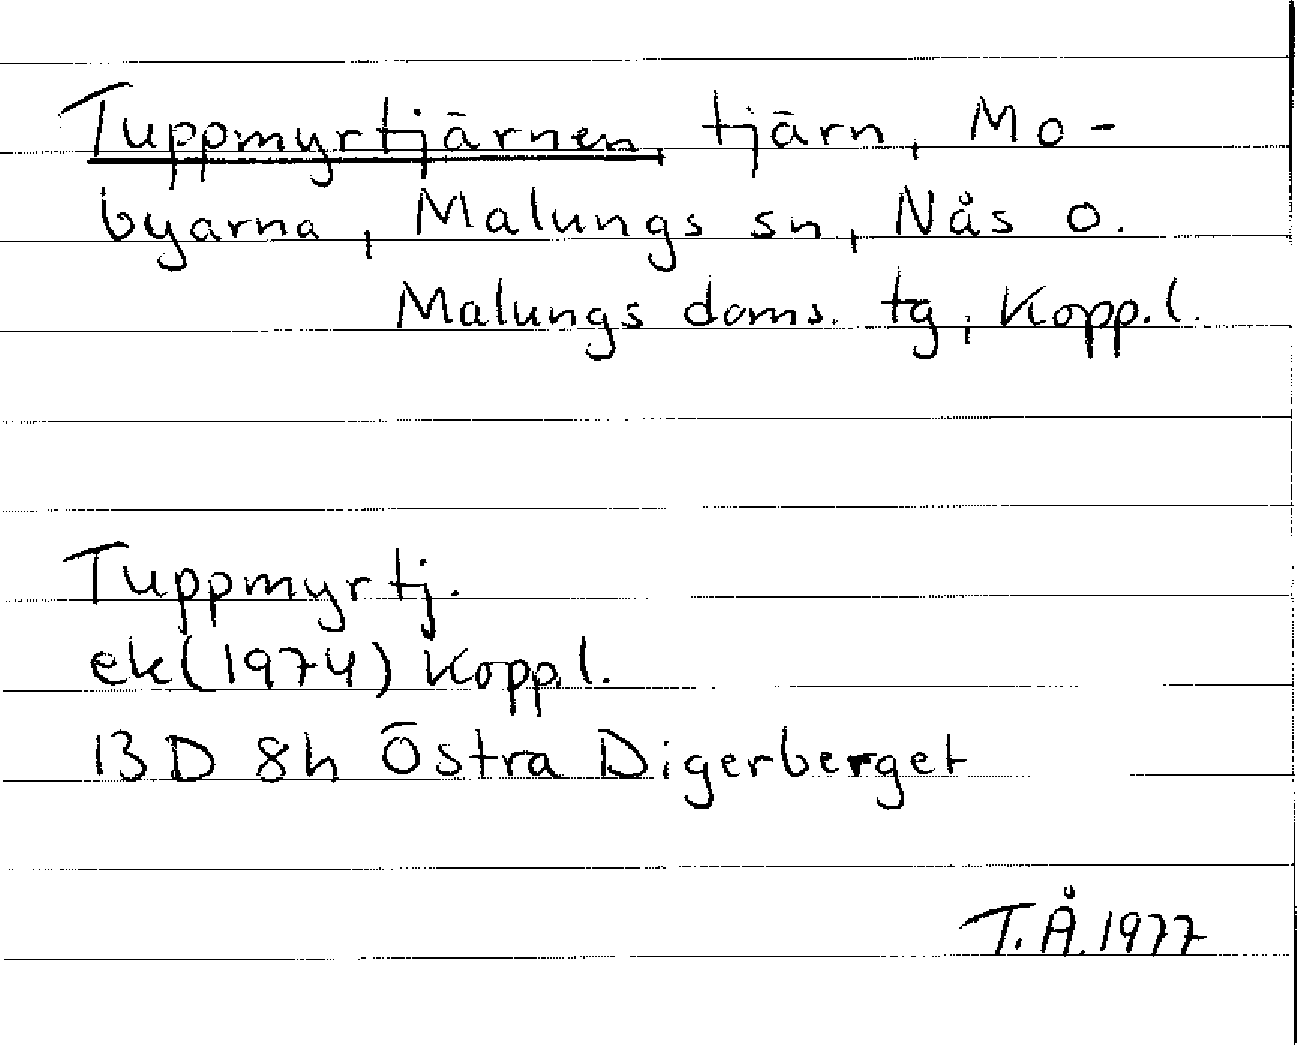 Tuppmyrtjärnen, tjärn, Mo-
byarna, Malungs sn, Nås o.
Malungs doms. tg, Kopp.l.
Tuppmyrtj.
ek(1974) Kopp.l.
13D 8h Östra Digerberget
T.Å.1977